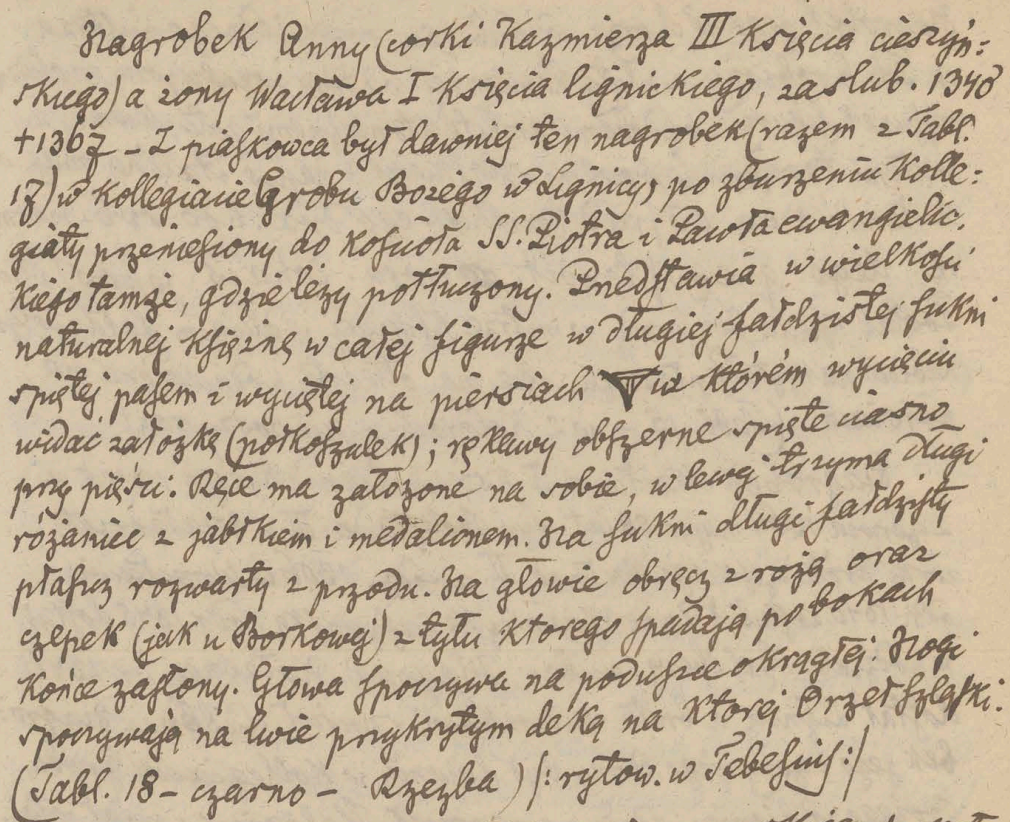 Nagrobek Anny (corki Kazmierza III Księcia cieszyń:
skiego) a żony Wacława I Księcia lignickiego, zaslub. 1348
+1367 – Z piaskowca był dawniej ten nagrobek (razem z Tabl.
17) w Kollegiacie Grobu Bożego w Lignicy, po zburzeniu Kolle:
giaty przeniesiony do kościoła SS. Piotra i Pawła ewangielic.
kiego tamże, gdzie leży potłuczony. Przedstawia w wielkości
naturalnej Księżnę w całej figurze w długiej fałdzistej sukni
spiętej pasem i wyciętej na piersiach w którém wycięciu
widać załóżkę (półkoszulek); rękawy obszerne spięte ciasno
przy pięści: Ręce ma założone na sobie, w lewej trzyma długi
różaniec z jabłkiem i medalionem. Na sukni długi fałdzisty
płaszcz rozwarty z przodu. Na głowie obręcz z rożą oraz
czepek (jak u Borkowej) z tyłu ktorego spadają po bokach
Końce zasłony. Głowa spoczywa na poduszce okrągłej. Nogi
spoczywają na lwie przykrytym deką na ktorej Orzeł szląski.
(Tabl. 18 – czarno – Rzezba) /: rytow. w Tebesius :/